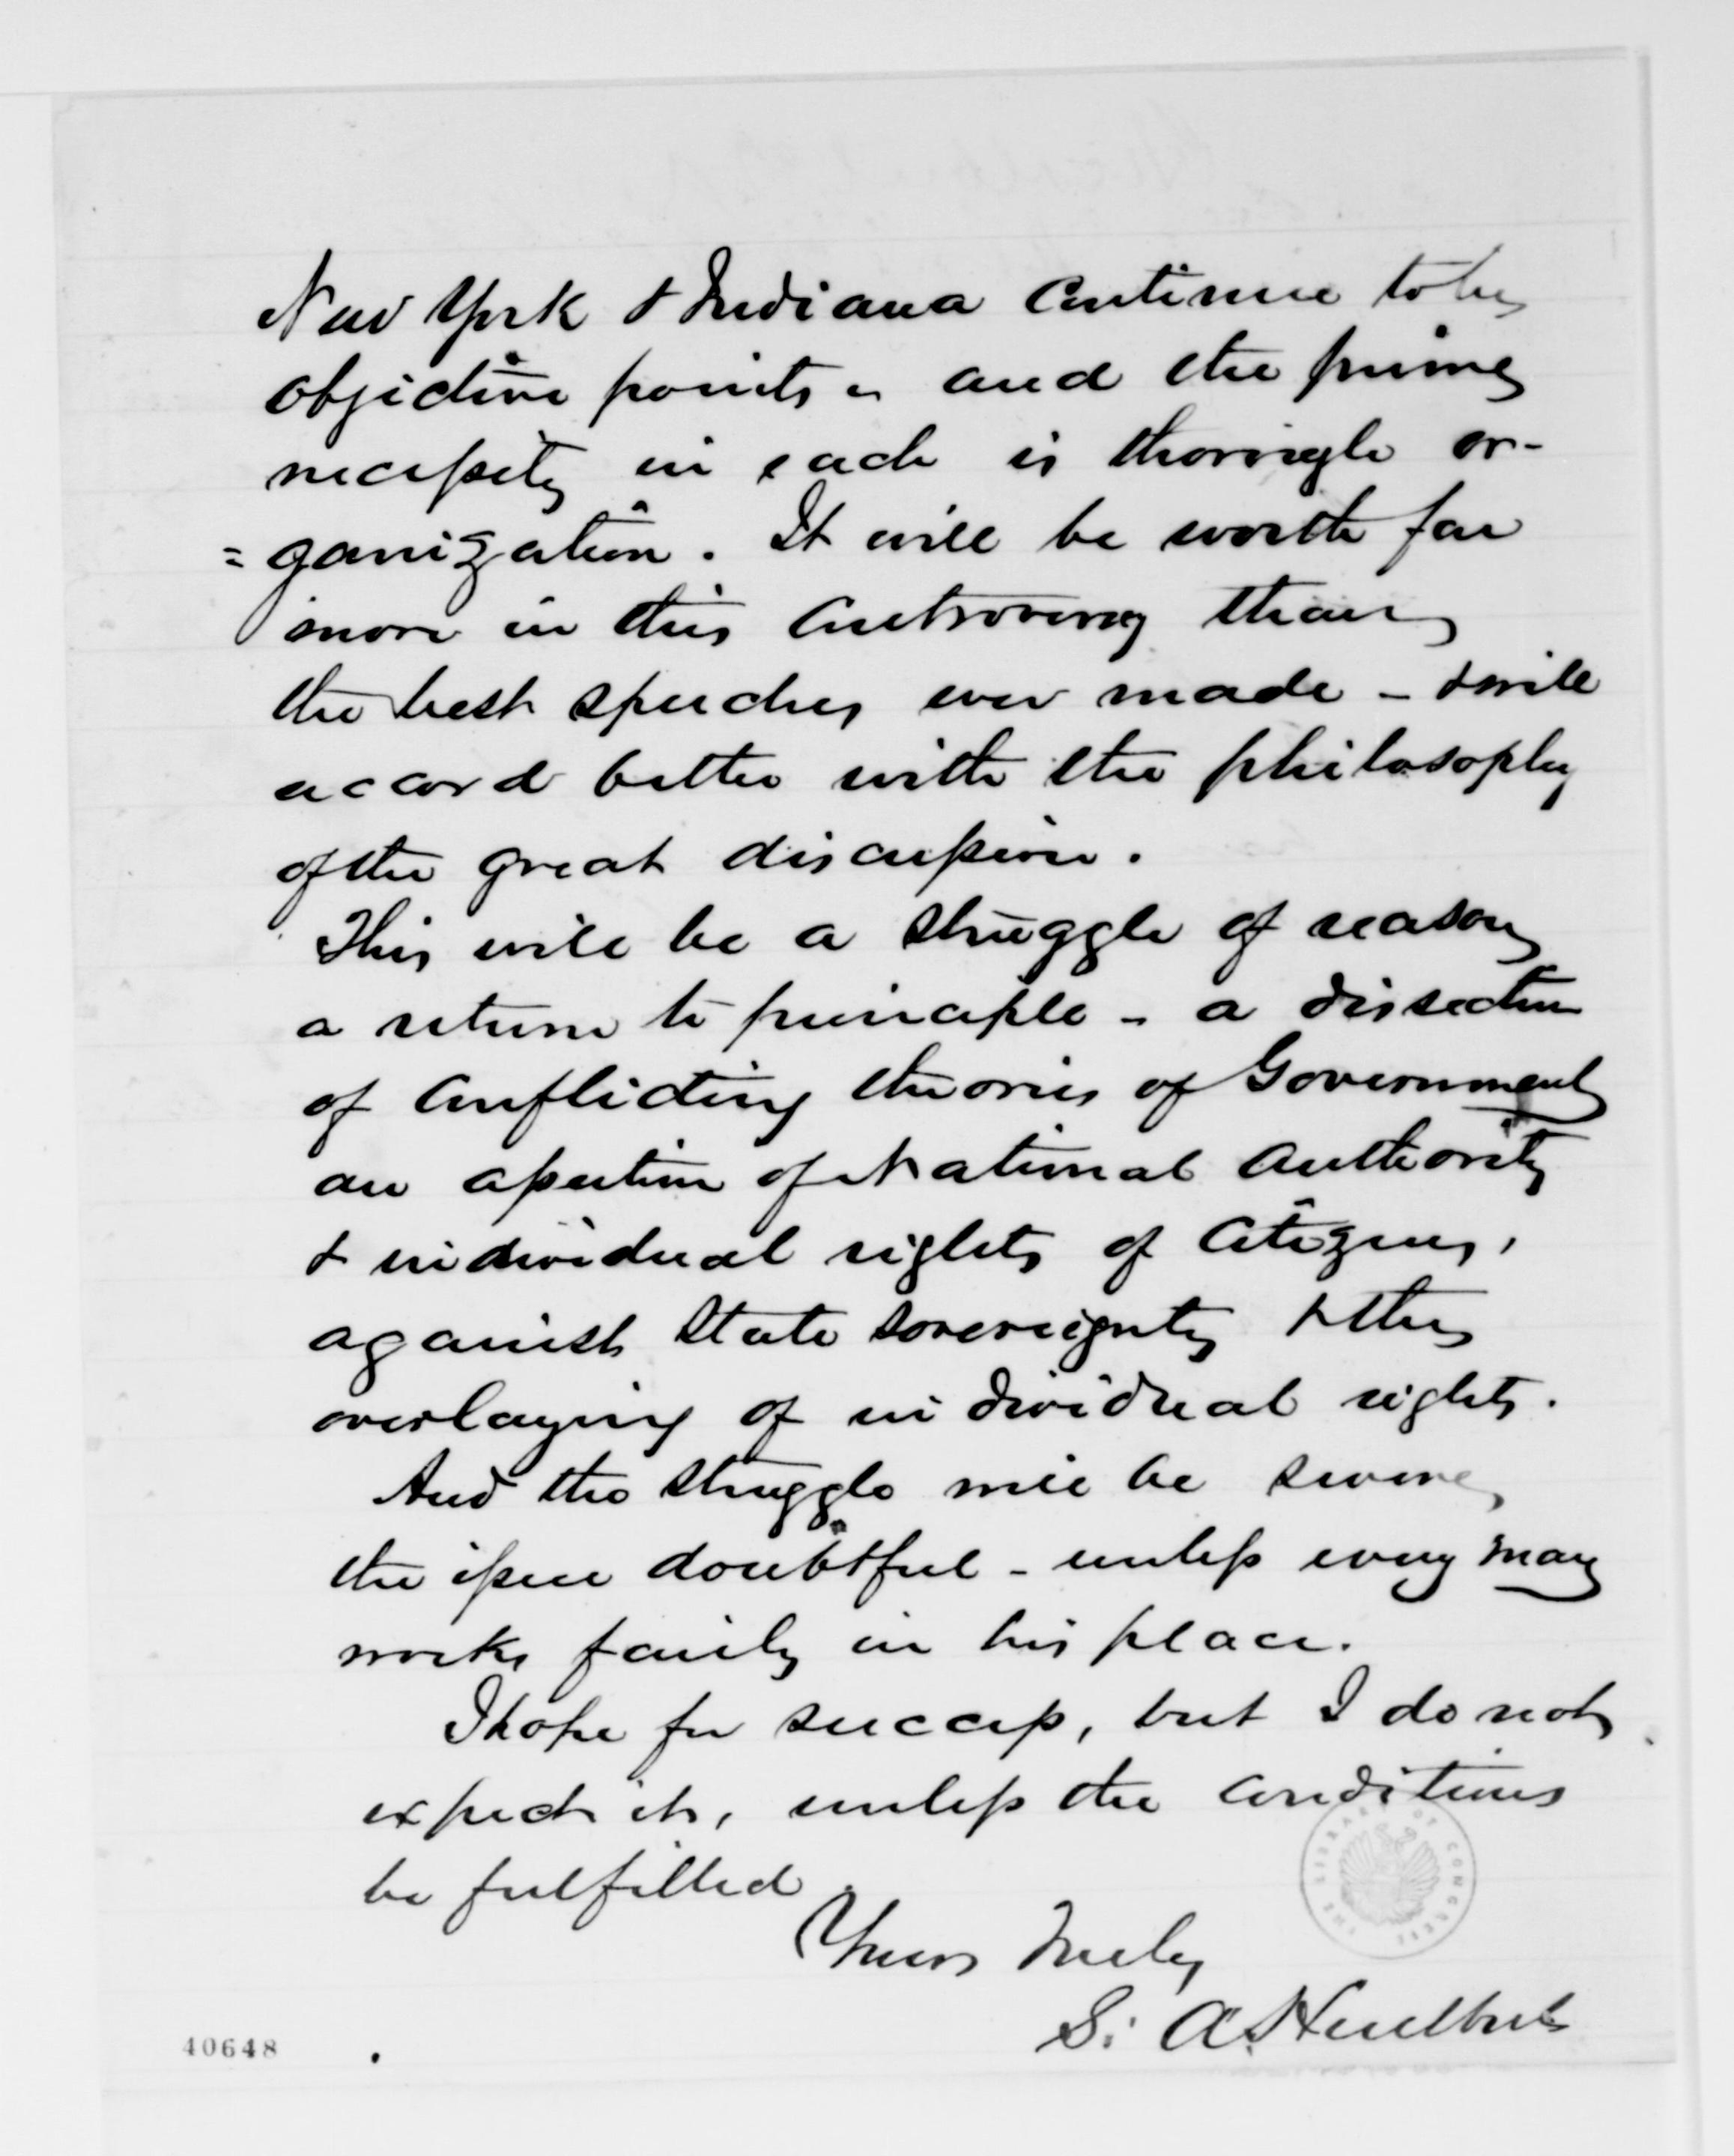 New York & Indiana continue to be
objective points - and the prime
necessity in each is thorough or-
=ganization. It will be worth far
more in this controversy than
the best speeches ever made - & will
accord better with the philosophy
of the great discussion.
This will be a struggle of reason
a return to principle - a dissection
of conflicting theories of Government
an assertion of National authority
& individual rights of Citizens,
against State sovereignty & the
overlaying of individual rights.
And the struggle will be severe,
the issue doubtful - unless every man
works fairly in his place.
I hope for success, but I do not
expect it, unless the conditions
be fulfilled.
Yours Truly
S. A. Hurlbut
THE LIBRARY OF CONGRESS
40648